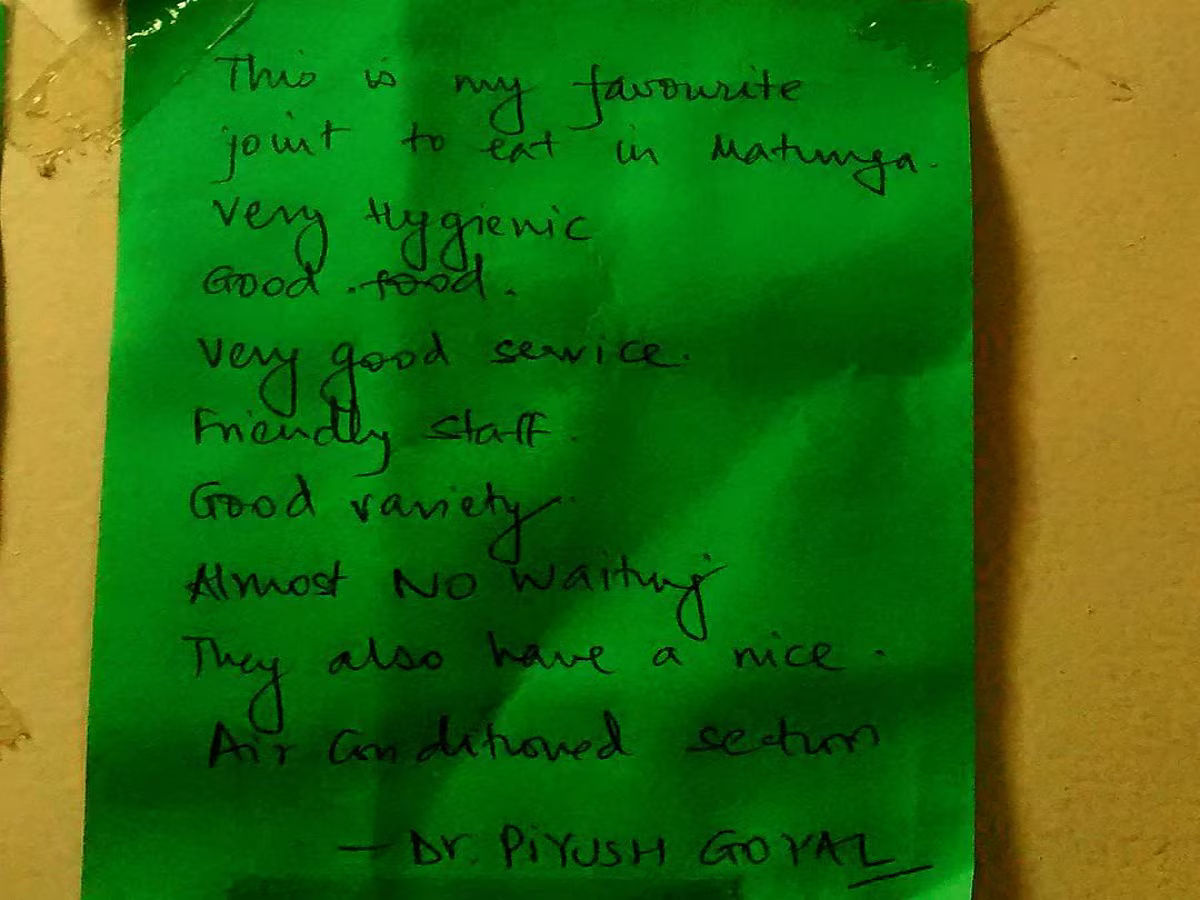 This is my favourite
joint to eat in Matunga.
Very Hygienic
Good food.
Very good service.
Friendly staff.
Good variety.
Almost NO Waiting
They also have a nice.
Air Conditioned section
— Dr. PiYUSH GOYAL